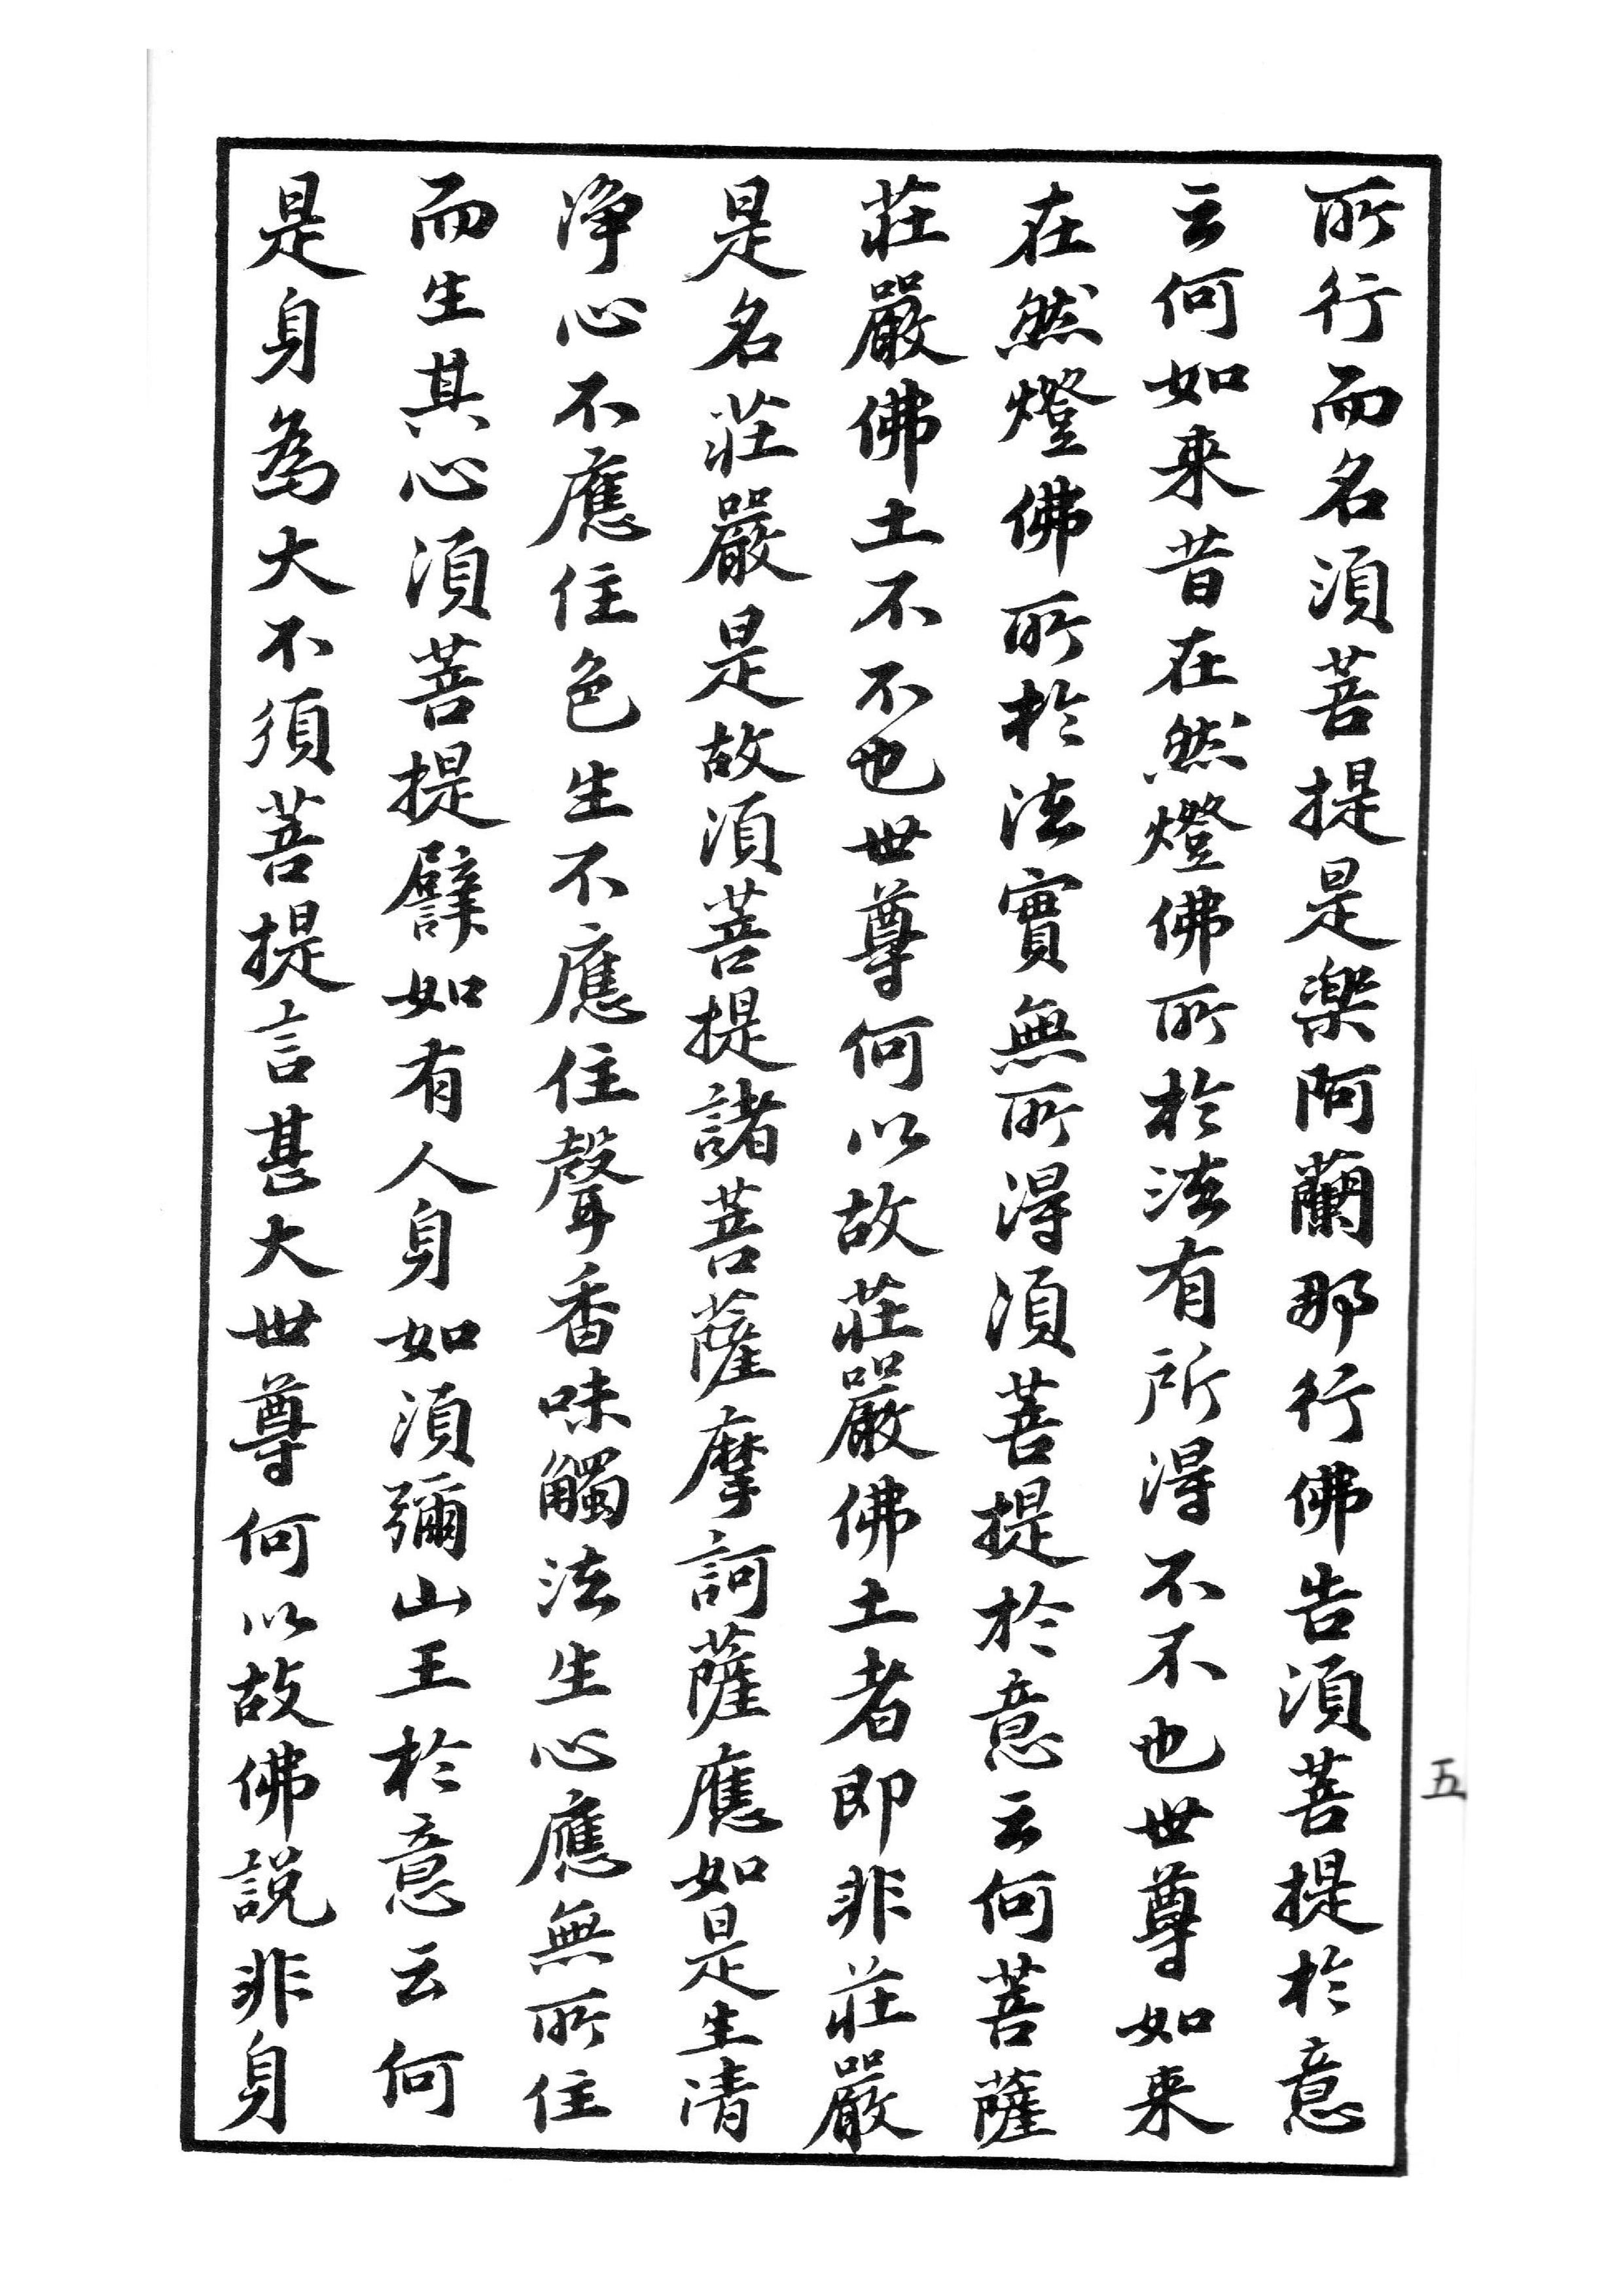 所行而名須菩提是樂阿蘭那行佛告須菩提於意
云何如来昔在然燈佛所於法有所得不不也世尊如来
在然燈佛所於法實無所得須菩提於意云何菩薩
莊嚴佛土不不也世尊何以故莊嚴佛土者即非莊嚴
是名莊嚴是故須菩提諸菩薩摩訶薩應如是生清
淨心不應住色生不應住聲香味觸法生心應無所住
而生其心須菩提譬如有人身如須彌山王於意云何
是身為大不須菩提言甚大世尊何以故佛説非身
五